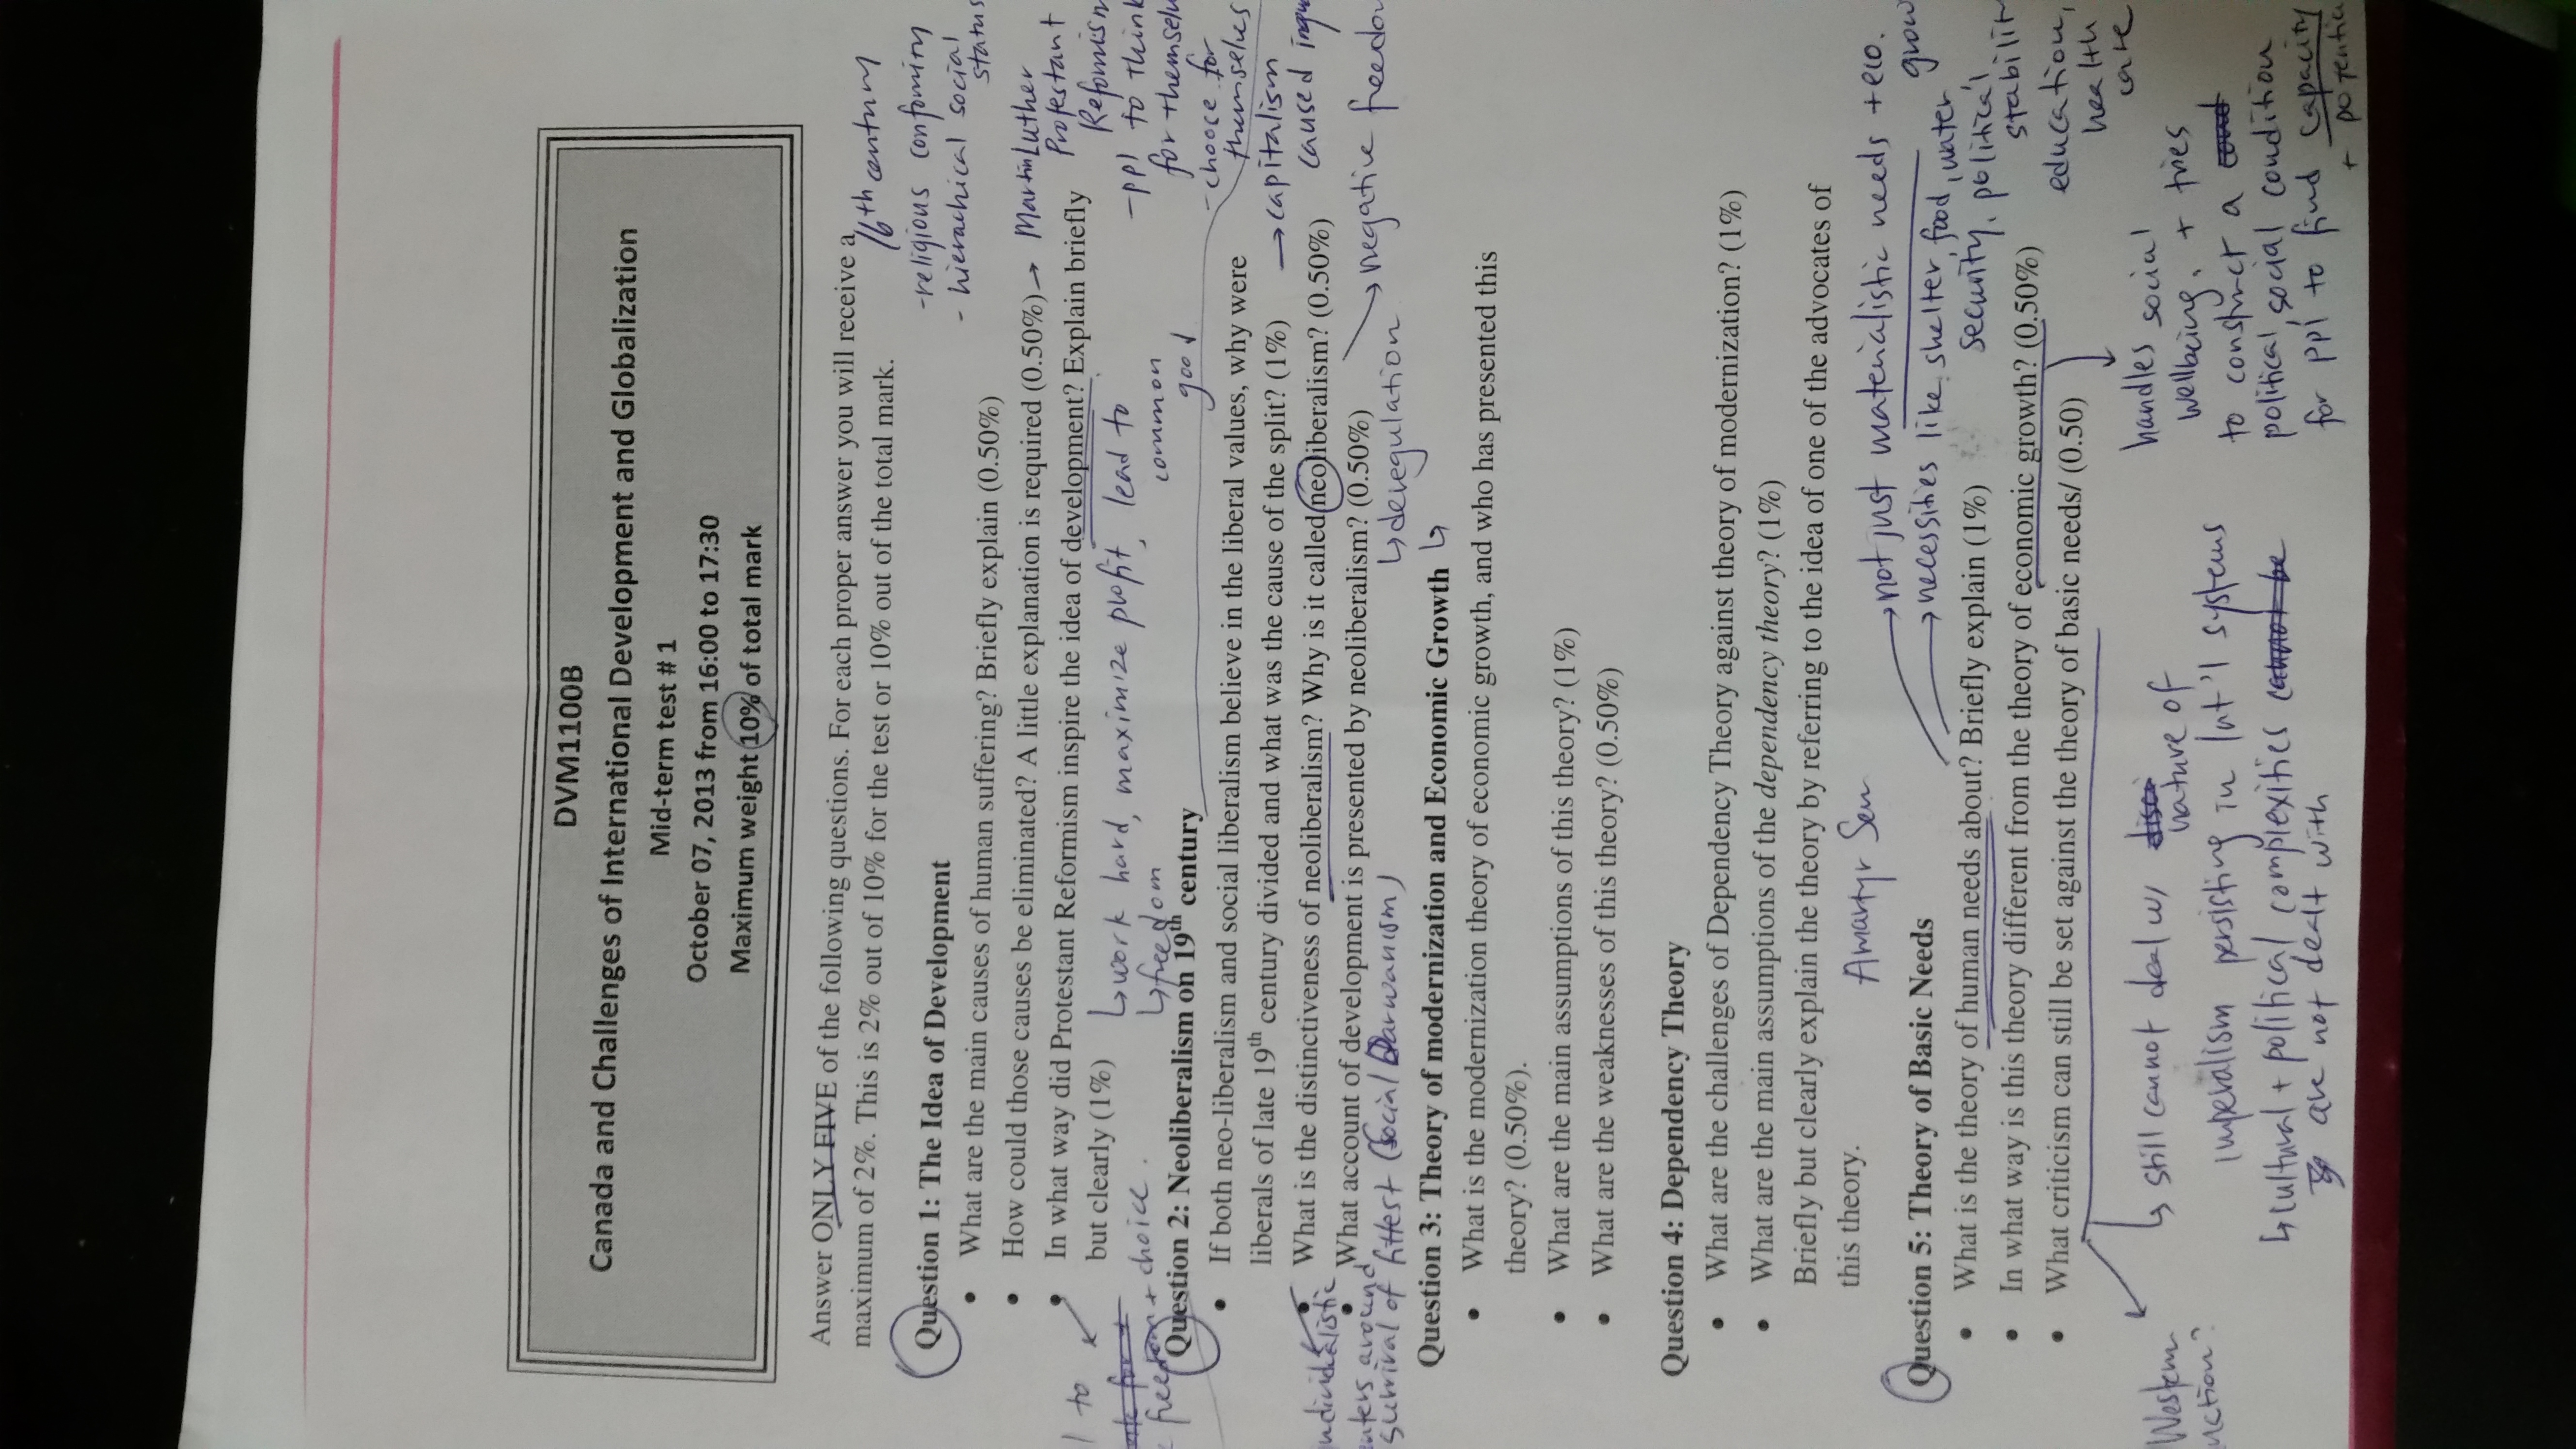 DVM1100B
Canada and Challenges of International Development and Globalization
Mid-term test # 1
October 07, 2013 from 16:00 to 17:30
Maximum weight 10% of total mark
Answer ONLY FIVE of the following questions. For each proper answer you will receive a
maximum of 2%. This is 2% out of 10% for the test or 10% out of the total mark.
16th century
-religious conforming
- hierachical social
status
Question 1: The Idea of Development
• What are the main causes of human suffering? Briefly explain (0.50%)
• How could those causes be eliminated? A little explanation is required (0.50%) → Martin Luther
Protestant
Refomism
• In what way did Protestant Reformism inspire the idea of development? Explain briefly
but clearly (1%)
-ppl to think
for themselves
-choose for
themselves
↳work hard, maximize profit, lead to
common
good
↳freedom
+ choice.
Question 2: Neoliberalism on 19th century
• If both neo-liberalism and social liberalism believe in the liberal values, why were
liberals of late 19th century divided and what was the cause of the split? (1%)
→capitalism
caused
• What is the distinctiveness of neoliberalism? Why is it called neoliberalism? (0.50%)
→negative freedom
• What account of development is presented by neoliberalism? (0.50%)
↳deregulation
around
survival of fittest (social Darwanism)
Question 3: Theory of modernization and Economic Growth ↳
• What is the modernization theory of economic growth, and who has presented this
theory? (0.50%).
• What are the main assumptions of this theory? (1%)
• What are the weaknesses of this theory? (0.50%)
Question 4: Dependency Theory
• What are the challenges of Dependency Theory against theory of modernization? (1%)
• What are the main assumptions of the dependency theory? (1%)
Briefly but clearly explain the theory by referring to the idea of one of the advocates of
this theory.
Amartyr Sen
→not just materialistic needs + eco.
grow
→necessities like shelter, food, water
security, political
stability
education,
health
care
Question 5: Theory of Basic Needs
• What is the theory of human needs about? Briefly explain (1%)
• In what way is this theory different from the theory of economic growth? (0.50%)
• What criticism can still be set against the theory of basic needs/ (0.50)
handles social
wellbeing, + tries
to construct a
political, social condition
for ppl to find capacity
+ potential
↳ still cannot deal w/ nature of
imperalism persisting in Int'l systems
↳cultural + political complexities
are not dealt with
Western